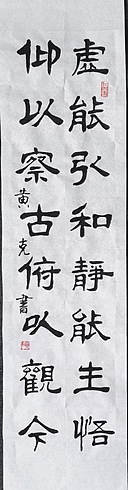 虚能引和静能生悟
仰以察古俯以觀今
黄克書